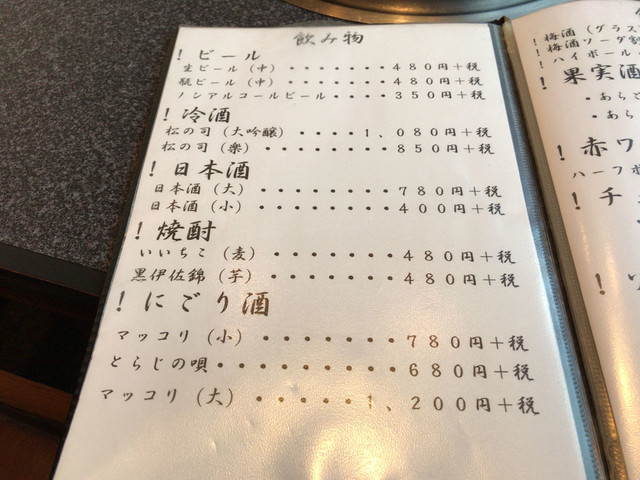 飲み物
！ビール
生ビール（中）・・・・・・・・４８０円＋税
瓶ビール（中）・・・・・・・・４８０円＋税
ノンアルコールビール・・・・・３５０円＋税
！冷酒
松の司（大吟醸）・・・・・１、０８０円＋税
松の司（楽）・・・・・・・・・８５０円＋税
！日本酒
日本酒（大）・・・・・・・・・７８０円＋税
日本酒（小）・・・・・・・・・４００円＋税
！焼酎
いいちこ（麦）・・・・・・・・４８０円＋税
黒伊佐錦（芋）・・・・・・・・４８０円＋税
！にごり酒
マッコリ（小）・・・・・・・７８０円＋税
とらじの唄・・・・・・・・・６８０円＋税
マッコリ（大）・・・・・１、２００円＋税
！梅酒（グラス
！梅酒ソーダ割
！ハイボール
！果実酒
・あらご
・あら
！赤ワ
ハーフボ
！チ
！